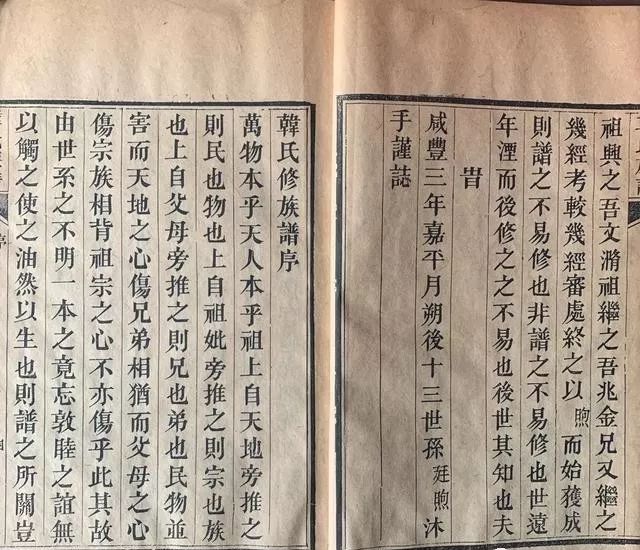 祖興之吾文漪祖繼之吾兆金兄又繼之
幾經考較幾經審處終之以煦而始獲成
則譜之不易修也非譜之不易修也世遠
年湮而後修之之不易也後世其知也夫
旹
咸豐三年嘉平月朔後十三世孫廷煦沐
手謹誌
韓氏修族譜序
萬物本乎天人本乎祖上自天地旁推之
則民也物也上自祖妣旁推之則宗也族
也上自父母旁推之則兄也弟也民物並
害而天地之心傷兄弟相猶而父母之心
傷宗族相背祖宗之心不亦傷乎此其故
由世系之不明一本之竟忘敦睦之誼無
以觸之使之油然以生也則譜之所關豈
序